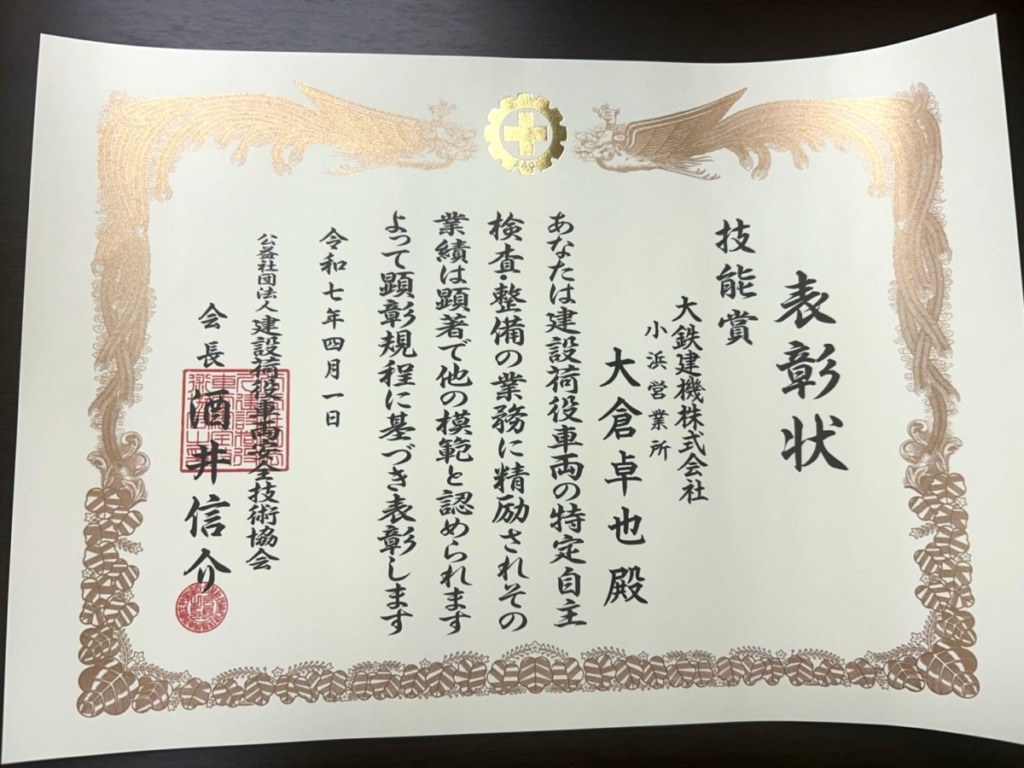 表彰状
技能賞
大鉄建機株式会社
小浜営業所
大倉卓也殿
あなたは建設荷役車両の特定自主
検査・整備の業務に精励されその
業績は顕著で他の模範と認められます
よって顕彰規程に基づき表彰します
令和七年四月一日
公益社団法人建設荷役車両安全技術協会
会長酒井信介